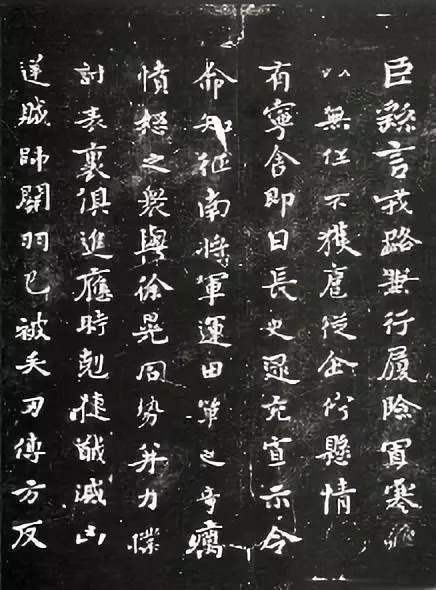 臣繇言戎路兼行履險冒寒
以無任不獲扈從企佇懸情
有寧舍即日長史逯充宣示令
命知征南將軍運田單之奇厲
憤怒之衆與徐晃同勢并力撲
討表裏俱進應時剋捷馘滅凶
逆賊帥關羽已被矢刃傅方反